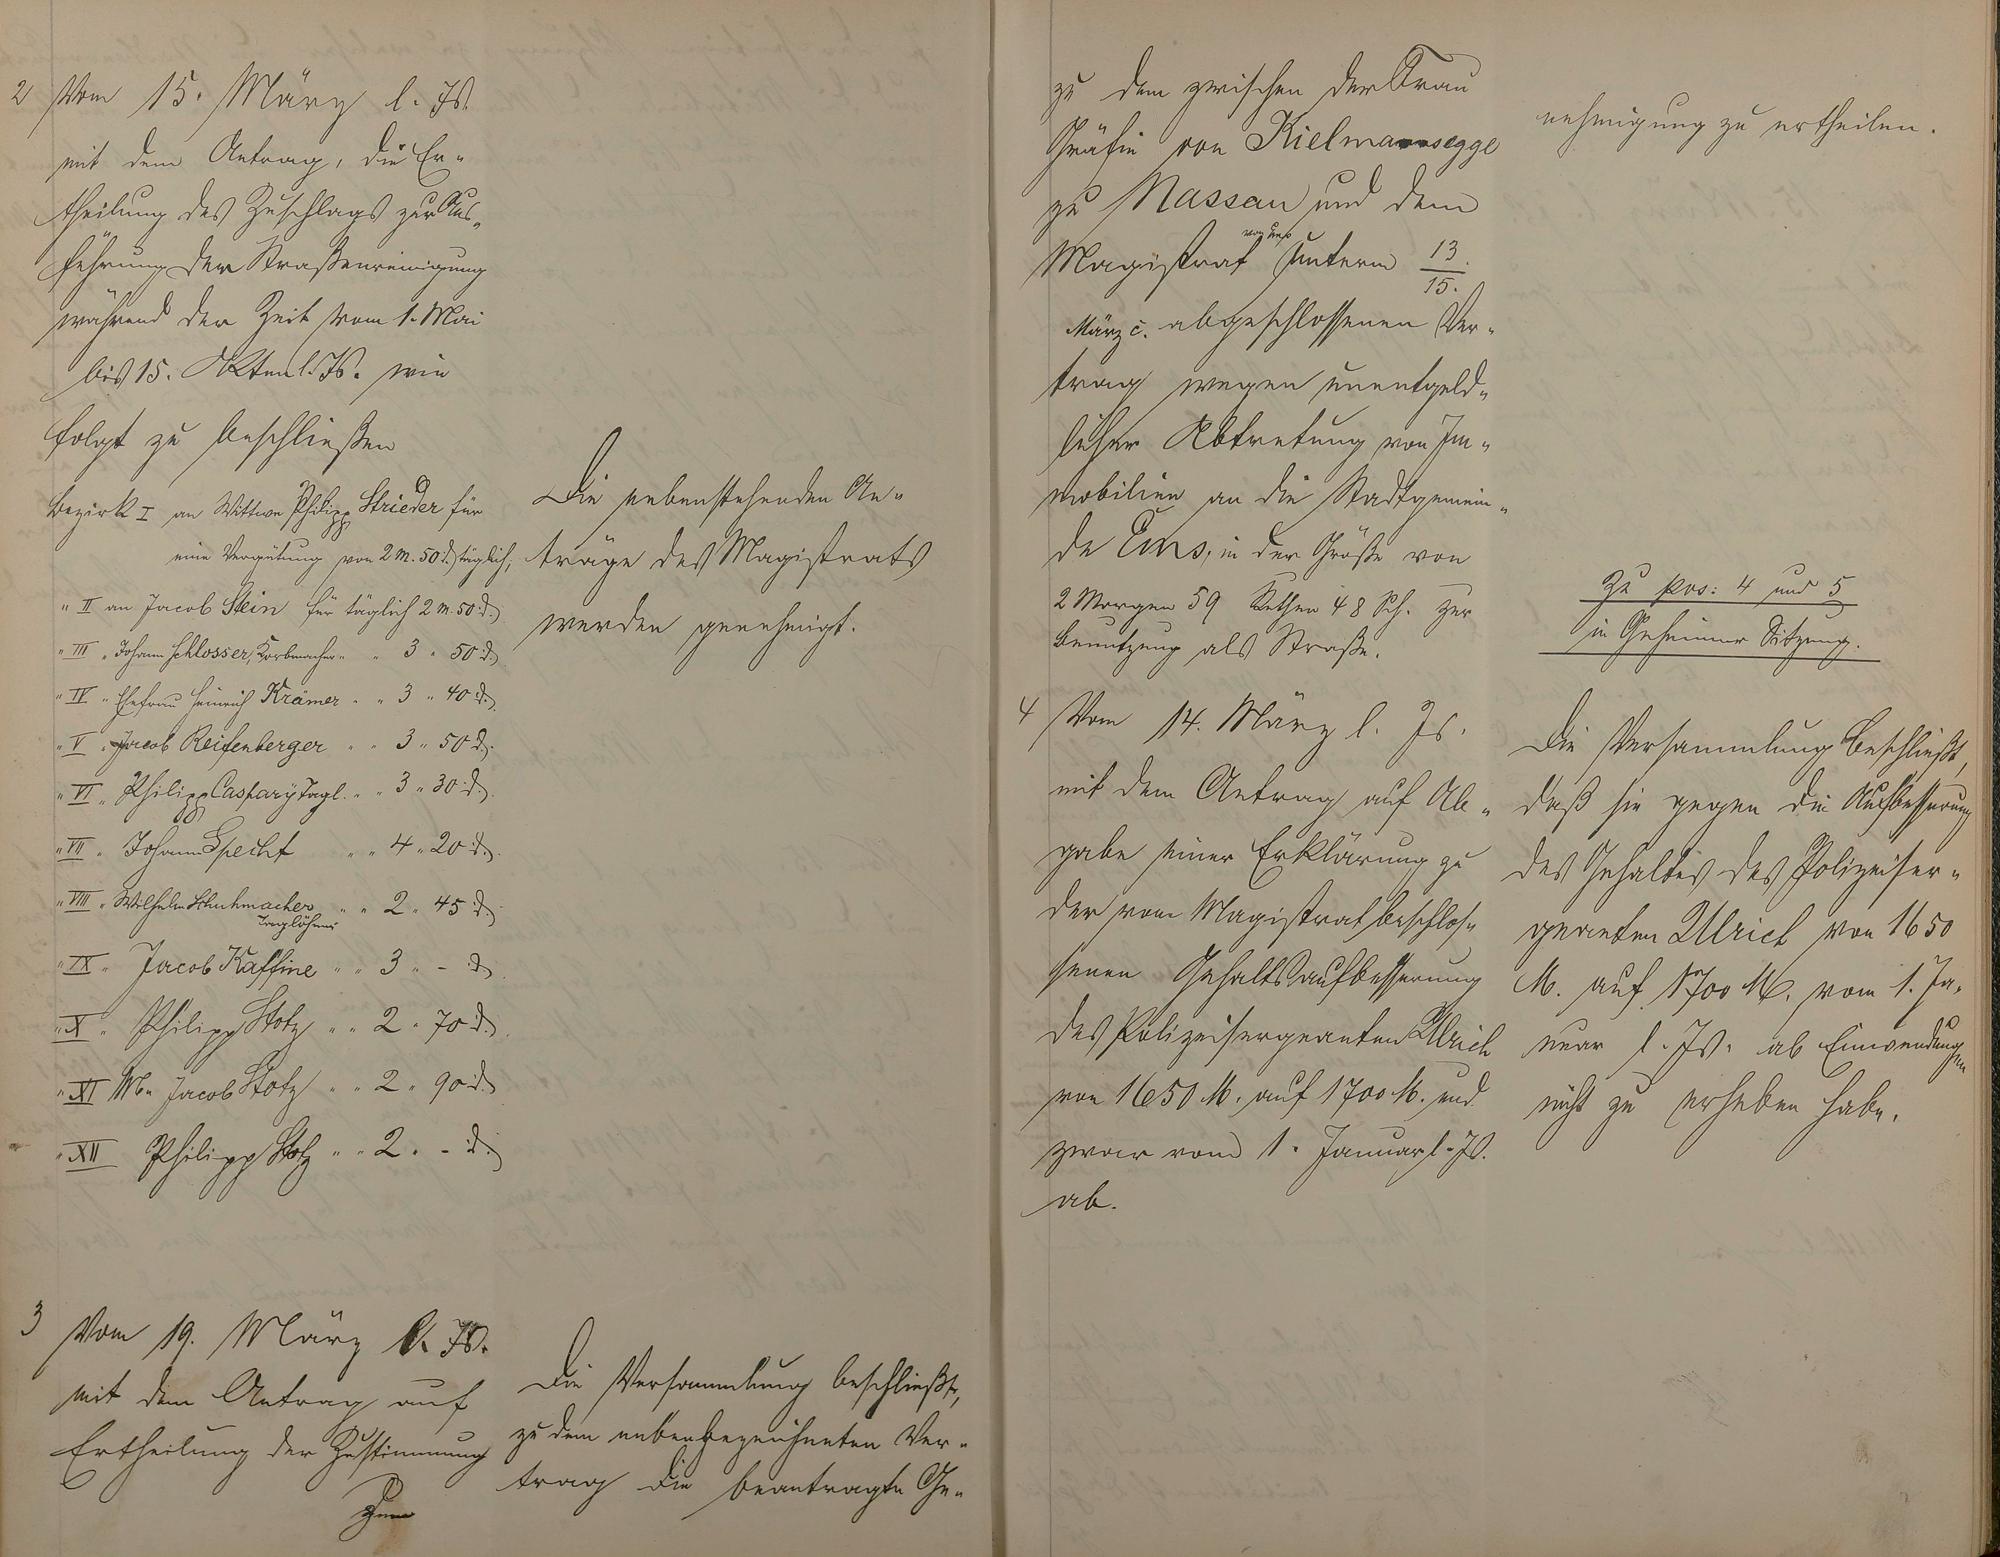 2 Vom 15. März l. Js.
mit dem Antrag, die Er-
theilung des Zuschlags zur Aus-
führung der Straßenreinigung
während der Zeit vom 1. Mai
bis 15. Oktbr. l. Js. wie
folgt zu beschließen
Bezirk I an Wittwe Philipp Strieder für
eine Vergütung von 2 M. 50 d. täglich,
" II an Jacob Stein für täglich 2 M. 50 d.
" III " Johann Schlosser, Korbmacher " " 3 " 50 d.
" IV " Ehefrau Heinrich Krämer " " 3 " 40 d.
" V " Jacob Reifenberger " " 3 " 50 d.
" VI " Philipp Caspary Tagl. " " 3 " 30 d.
" VII " Johann Specht " " 4 " 20 d.
" VIII " Wilhelm Schuhmacher " " 2 " 45 d.
Taglöhner
" IX " Jacob Kaffine " " 3 " - d.
" X " Philipp Stotz " " 2 " 70 d.
" XI Jacob Stotz " " 2 " 90 d.
" XII Philipp Stotz " " 2 " - d.
Die nebenstehenden An-
träge des Magistrats
werden genehmigt.
3 Vom 19. März l. Js.
mit dem Antrag auf
Ertheilung der Zustimmung
zum
Die Versammlung beschließt,
zu dem nebenbezeichneten Ver-
trag die beantragte Ge-
zu dem zwischen der Frau
Gräfin von Kielmannsegge
zu Nassau und dem
Magistrat unterm 13./15.
März c. abgeschlossenen Ver-
trag wegen unentgeld-
licher Abtretung von Im-
mobilien an die Stadtgemein-
de Ems, in der Größe von
2 Morgen 59 Ruthen 48 Sch. zur
Benutzung als Straße.
nehmigung zu ertheilen.
Zu pos: 4 und 5
in Geheimer Sitzung.
4 Vom 14. März l. Js.
mit dem Antrag auf Ab-
gabe einer Erklärung zu
der vom Magistrat beschlos-
senen Gehaltsaufbesserung
des Polizeisergeanten Ulrich
von 1650 M. auf 1700 M. und
zwar vom 1. Januar l. Js.
ab.
Die Versammlung beschließt,
daß sie gegen die Aufbesserung
des Gehaltes des Polizeiser-
geanten Ulrich von 1650
M. auf 1700 M. vom 1. Ja-
nuar l. Js. ab Einwendungen
nicht zu erheben habe.